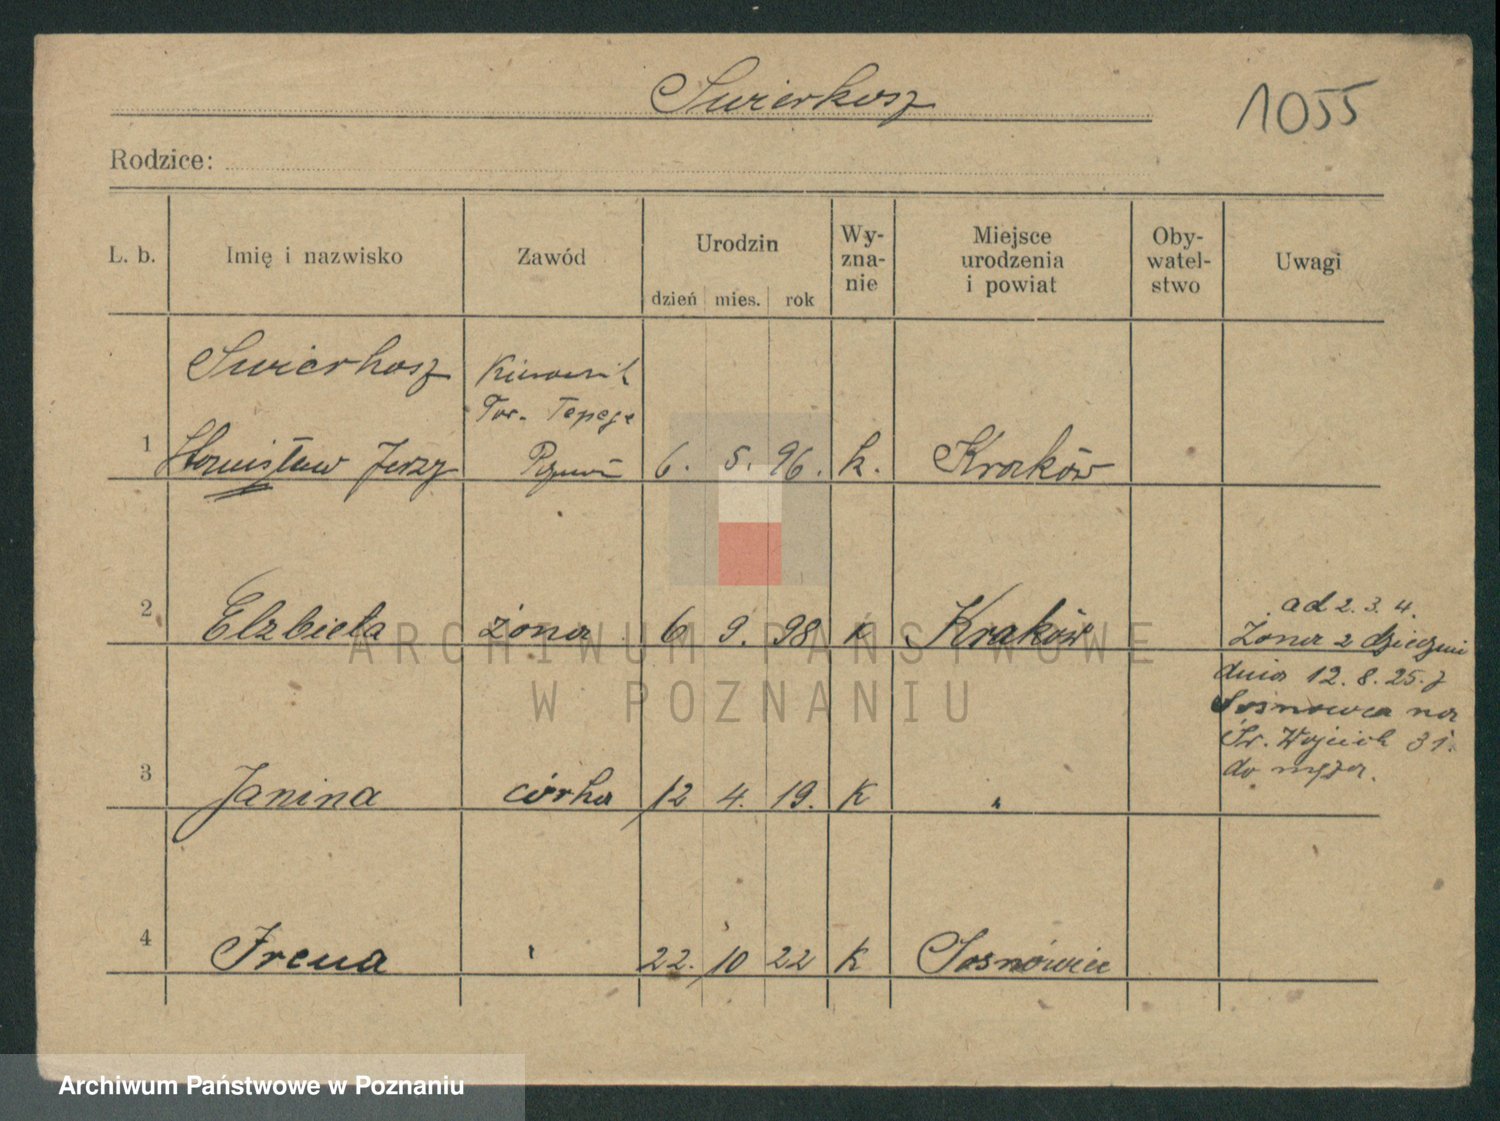 Swierkosz
1055
Rodzice:
L. b.
Imię i nazwisko
Zawód
Urodzin
dzień mies. rok
Wy-
zna-
nie
Miejsce
urodzenia
i powiat
Oby-
watel-
stwo
Uwagi
Swierkosz Kierownik
Tow. Tepege
1 Stanisław Jerzy 6. 5. 96. k. Kraków
2 Elzbieta żona 6 9. 98 k Kraków
ad 2. 3. 4.
Zona z dziećmi
dnia 12. 8. 25. z
Sosnowca na
Św. Wojciech 31.
do męża.
3 Janina córka 12 4. 19. k "
4 Irena " 22. 10 22 k Sosnowiec
ARCHIWUM PAŃSTWOWE
W POZNANIU
Archiwum Państwowe w Poznaniu